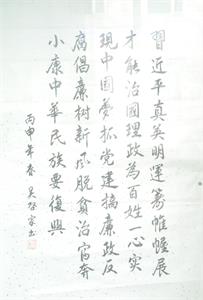 習近平真英明運籌帷幄展
才能治國理政為百姓一心实
現中国夢抓党建搞廉政反
腐倡廉树新风脱貧治富奔
小康中華民族要復興
丙申年春 吴